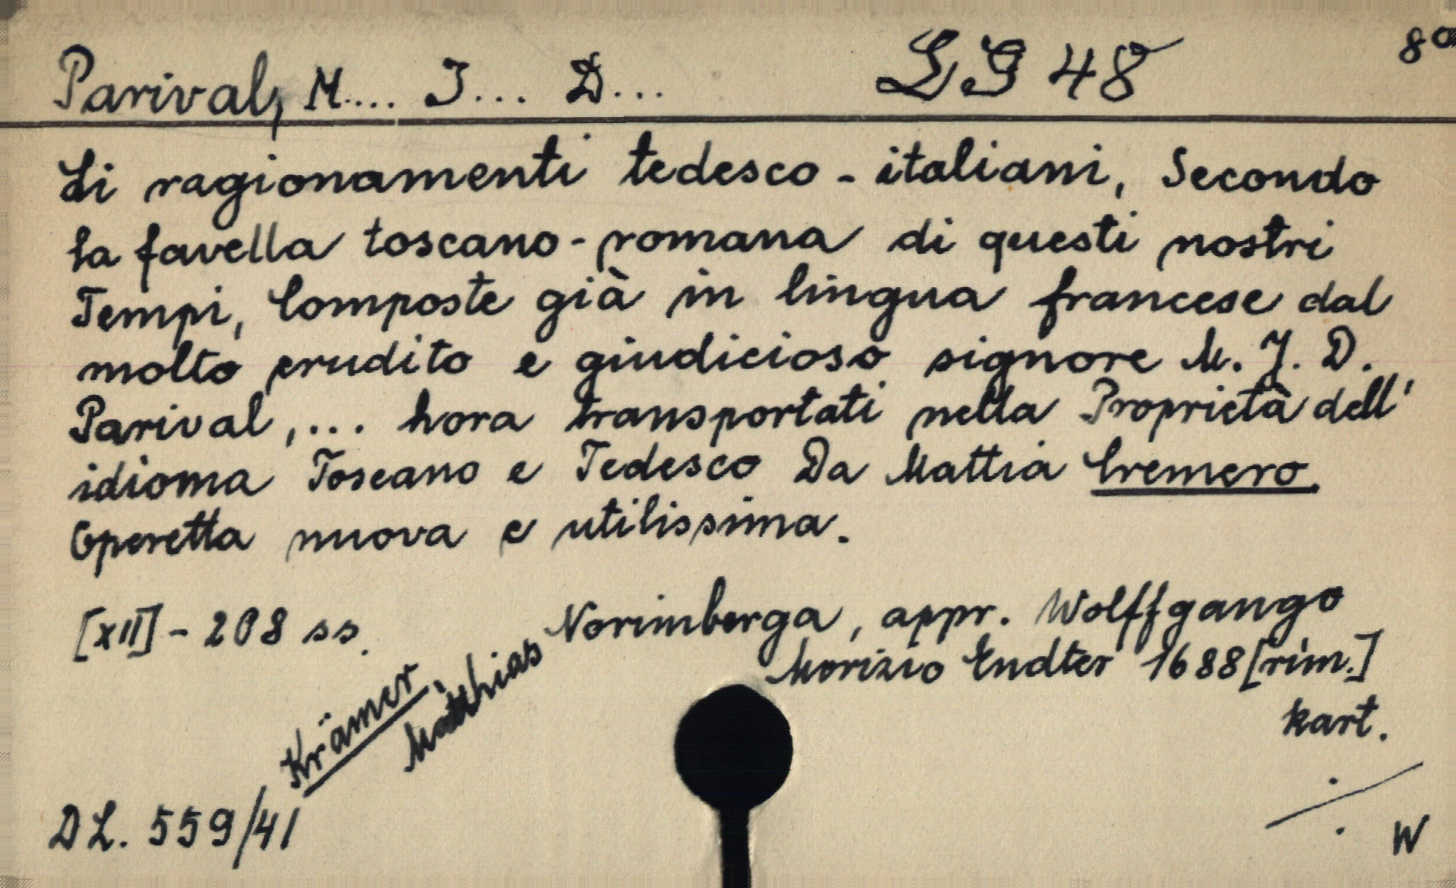 Parival, M.... J... D... LG 48 8°
Li ragionamenti tedesco-italiani, Secondo
la favella toscano-romana di questi nostri
Tempi, Composte già in lingua francese dal
molto erudito e giudicioso signore M. J. D.
Parival,... hora transportati nella Proprietà dell'
idioma Toscano e Tedesco Da Mattia Cremero.
Operetta nuova e utilissima.
[XII] - 208 ss.
Norimberga, appr. Wolffgango
Morizio Endter 1688 [rim.]
kart.
Krämer, Mathias
DL. 559/41
W